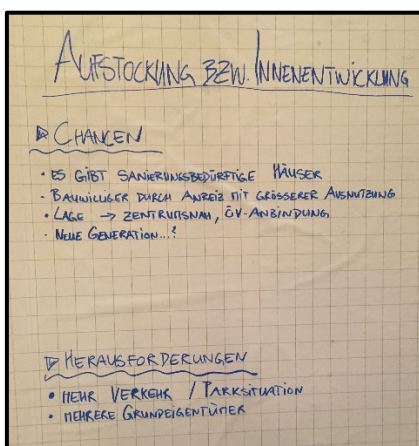 AUFSTOCKUNG BZW. INNENENTWICKLUNG
▷ CHANCEN
• ES GIBT SANIERUNGSBEDÜRFTIGE HÄUSER
• BAUWILLIGER DURCH ANREIZ MIT GRÖSSERER AUSNUTZUNG
• LAGE → ZENTRUMSNAH, ÖV-ANBINDUNG
• NEUE GENERATION...?
▷ HERAUSFORDERUNGEN
• MEHR VERKEHR / PARKSITUATION
• MEHRERE GRUNDEIGENTÜMER